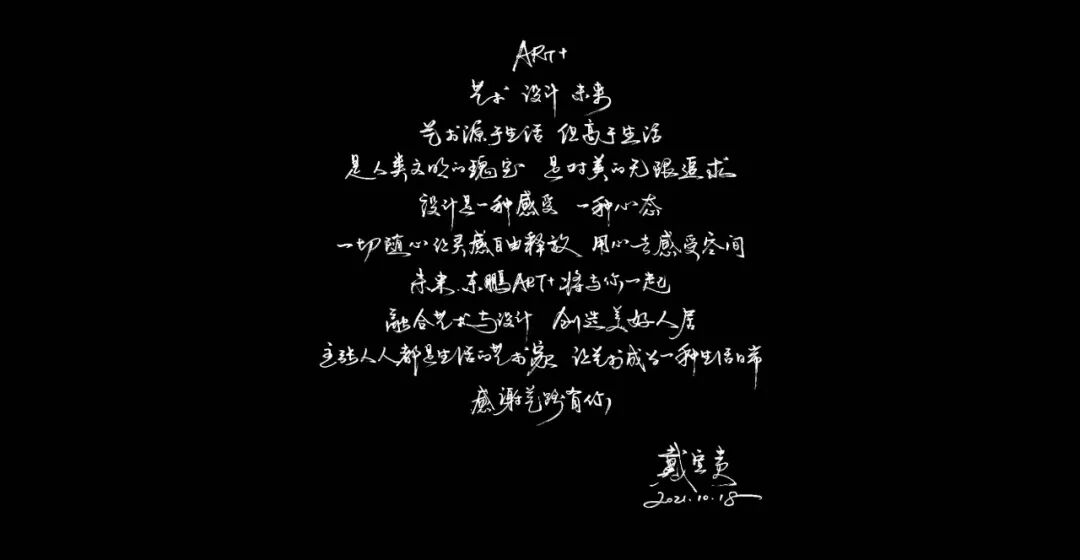 ART+
艺术 设计 未来
艺术源于生活 但高于生活
是人类文明的瑰宝 是对美的无限追求
设计是一种感受 一种心态
一切随心 让灵感自由释放 用心去感受空间
未来.东鹏ART+将与你一起
融合艺术与设计 创造美好人居
主张人人都是生活的艺术家 让艺术成为一种生活日常
感谢艺路有你
戴宝贵
2021.10.18